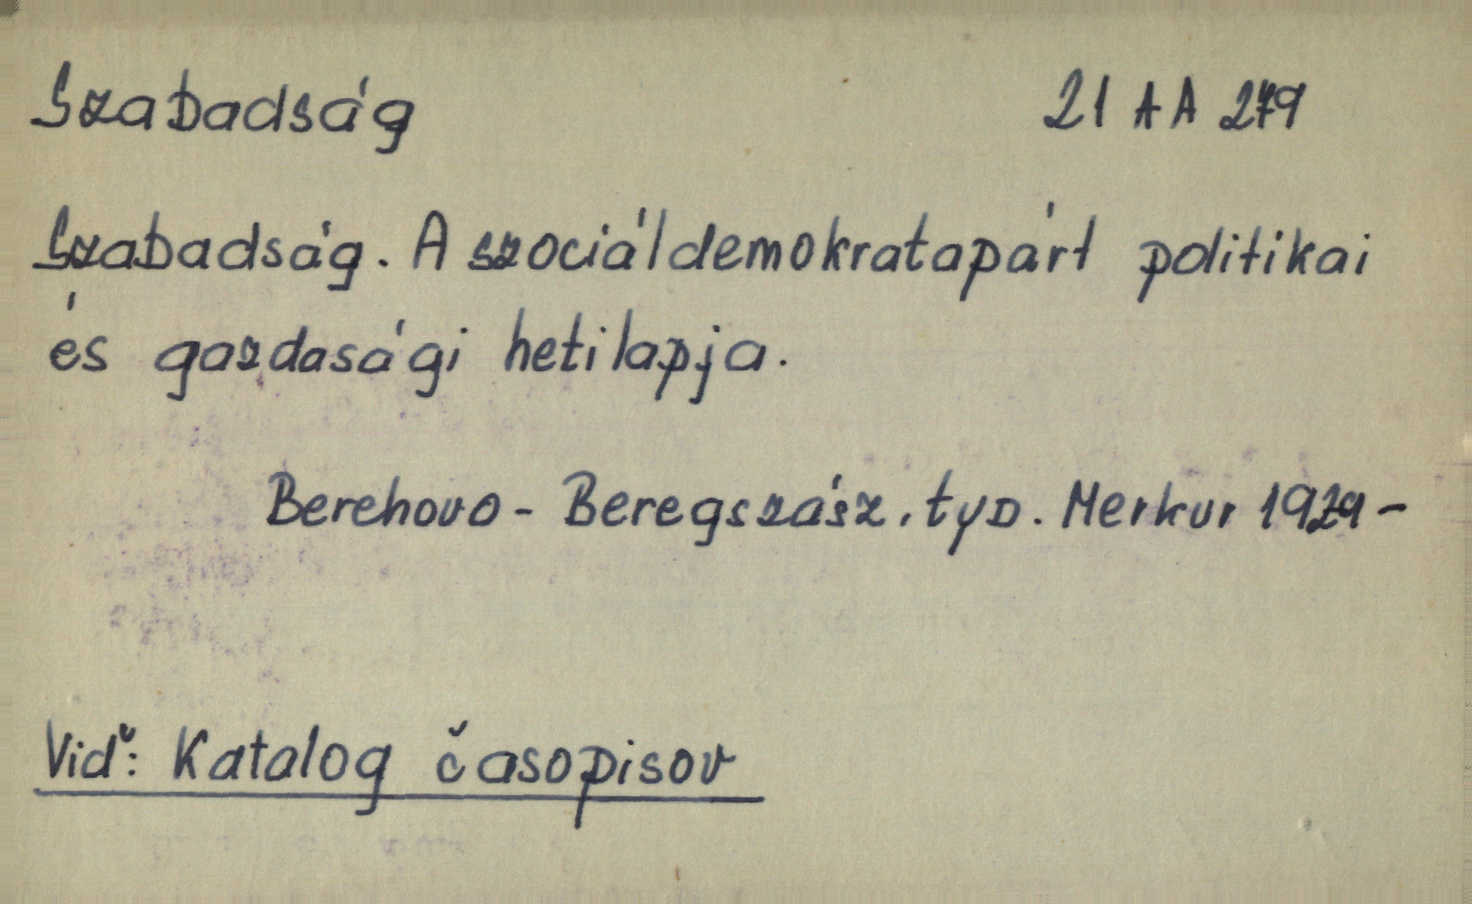 Szabadság 21 AA 279
Szabadság. A szociáldemokratapárt politikai
és gazdasági hetilapja.
Berehovo - Beregszász, typ. Merkur 1929 -
Viď: Katalog časopisov